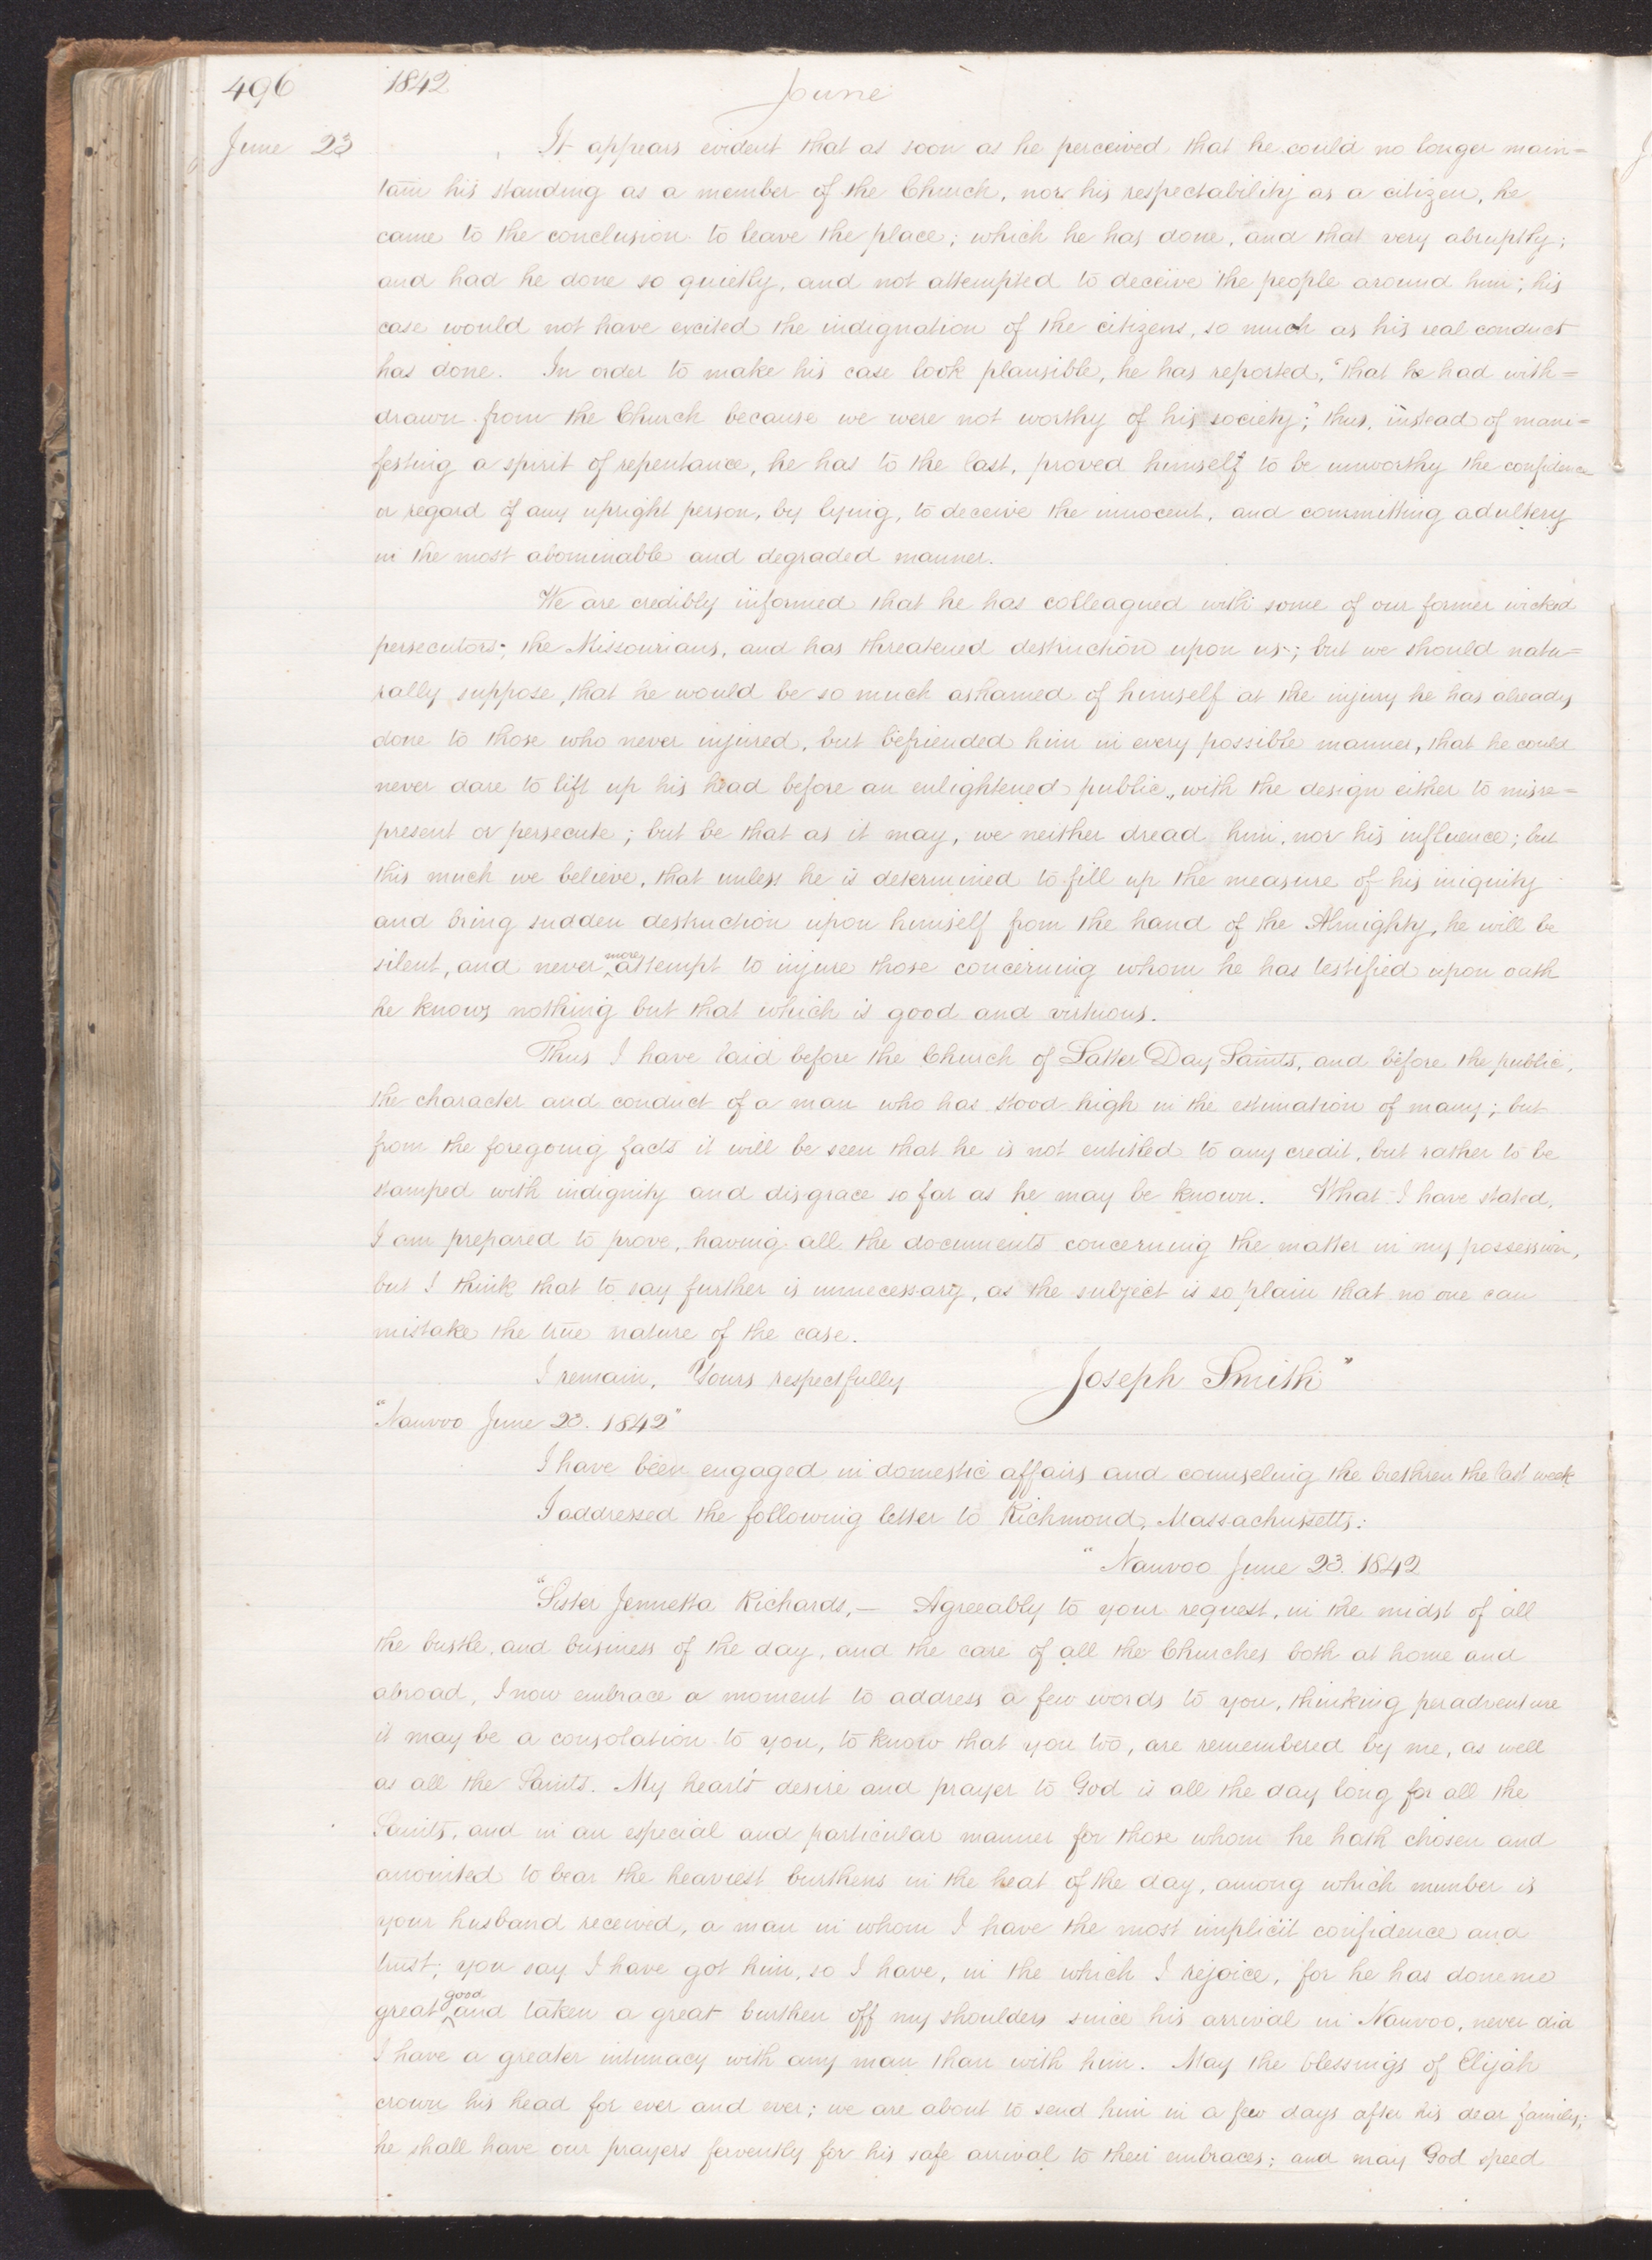 496 1842 June
June 23 It appears evident that as soon as he perceived that he could no longer main=
tain his standing as a member of the Church, nor his respectability as a citizen, he
came to the conclusion to leave the place; which he has done, and that very abruptly;
and had he done so quietly, and not attempted to deceive the people around him; his
case would not have excited the indignation of the citizens, so much as his real conduct
has done. In order to make his case look plausible, he has reported, "that he had with=
drawn from the Church because we were not worthy of his society;" thus, instead of mani=
festing a spirit of repentance, he has to the last, proved himself to be unworthy the confidence
or regard of any upright person, by lying, to deceive the innocent, and committing adultery
in the most abominable and degraded manner.
We are credibly informed that he has colleagued with some of our former wicked
persecutors; the Missourians, and has threatened destruction upon us; but we should natu=
rally suppose, that he would be so much ashamed of himself at the injury he has already
done to those who never injured, but befriended him in every possible manner, that he could
never dare to lift up his head before an enlightened public, with the design either to misre=
present or persecute; but be that as it may, we neither dread him, nor his influence; but
this much we believe, that unless he is determined to fill up the measure of his iniquity
and bring sudden destruction upon himself from the hand of the Almighty, he will be
silent, and never more attempt to injure those concerning whom he has testified upon oath
he knows nothing but that which is good and virtuous.
Thus I have laid before the Church of Latter Day Saints, and before the public,
the character and conduct of a man who has stood high in the estimation of many; but
from the foregoing facts it will be seen that he is not entitled to any credit, but rather to be
stamped with indignity and disgrace so far as he may be known. What I have stated,
I am prepared to prove, having all the documents concerning the matter in my possession,
but I think that to say further is unnecessary, as the subject is so plain that no one can
mistake the true nature of the case.
I remain, Yours respectfully Joseph Smith"
"Nauvoo June 23. 1842"
I have been engaged in domestic affairs and counseling the brethren the last week
I addressed the following letter to Richmond, Massachussetts:
"Nauvoo June 23. 1842
"Sister Jennetta Richards,— Agreeably to your request, in the midst of all
the bustle, and business of the day, and the care of all the Churches both at home and
abroad, I now embrace a moment to address a few words to you, thinking peradventure
it may be a consolation to you, to know that you too, are remembered by me, as well
as all the Saints. My heart's desire and prayer to God is all the day long for all the
Saints, and in an especial and particular manner for those whom he hath chosen and
anointed to bear the heaviest burthens in the heat of the day, among which number is
your husband received, a man in whom I have the most implicit confidence and
trust; you say I have got him, so I have, in the which I rejoice, for he has done me
great good and taken a great burthen off my shoulders since his arrival in Nauvoo, never did
I have a greater intimacy with any man than with him. May the blessings of Elijah
crown his head for ever and ever; we are about to send him in a few days after his dear family;
he shall have our prayers fervently for his safe arrival to their embraces; and may God speed